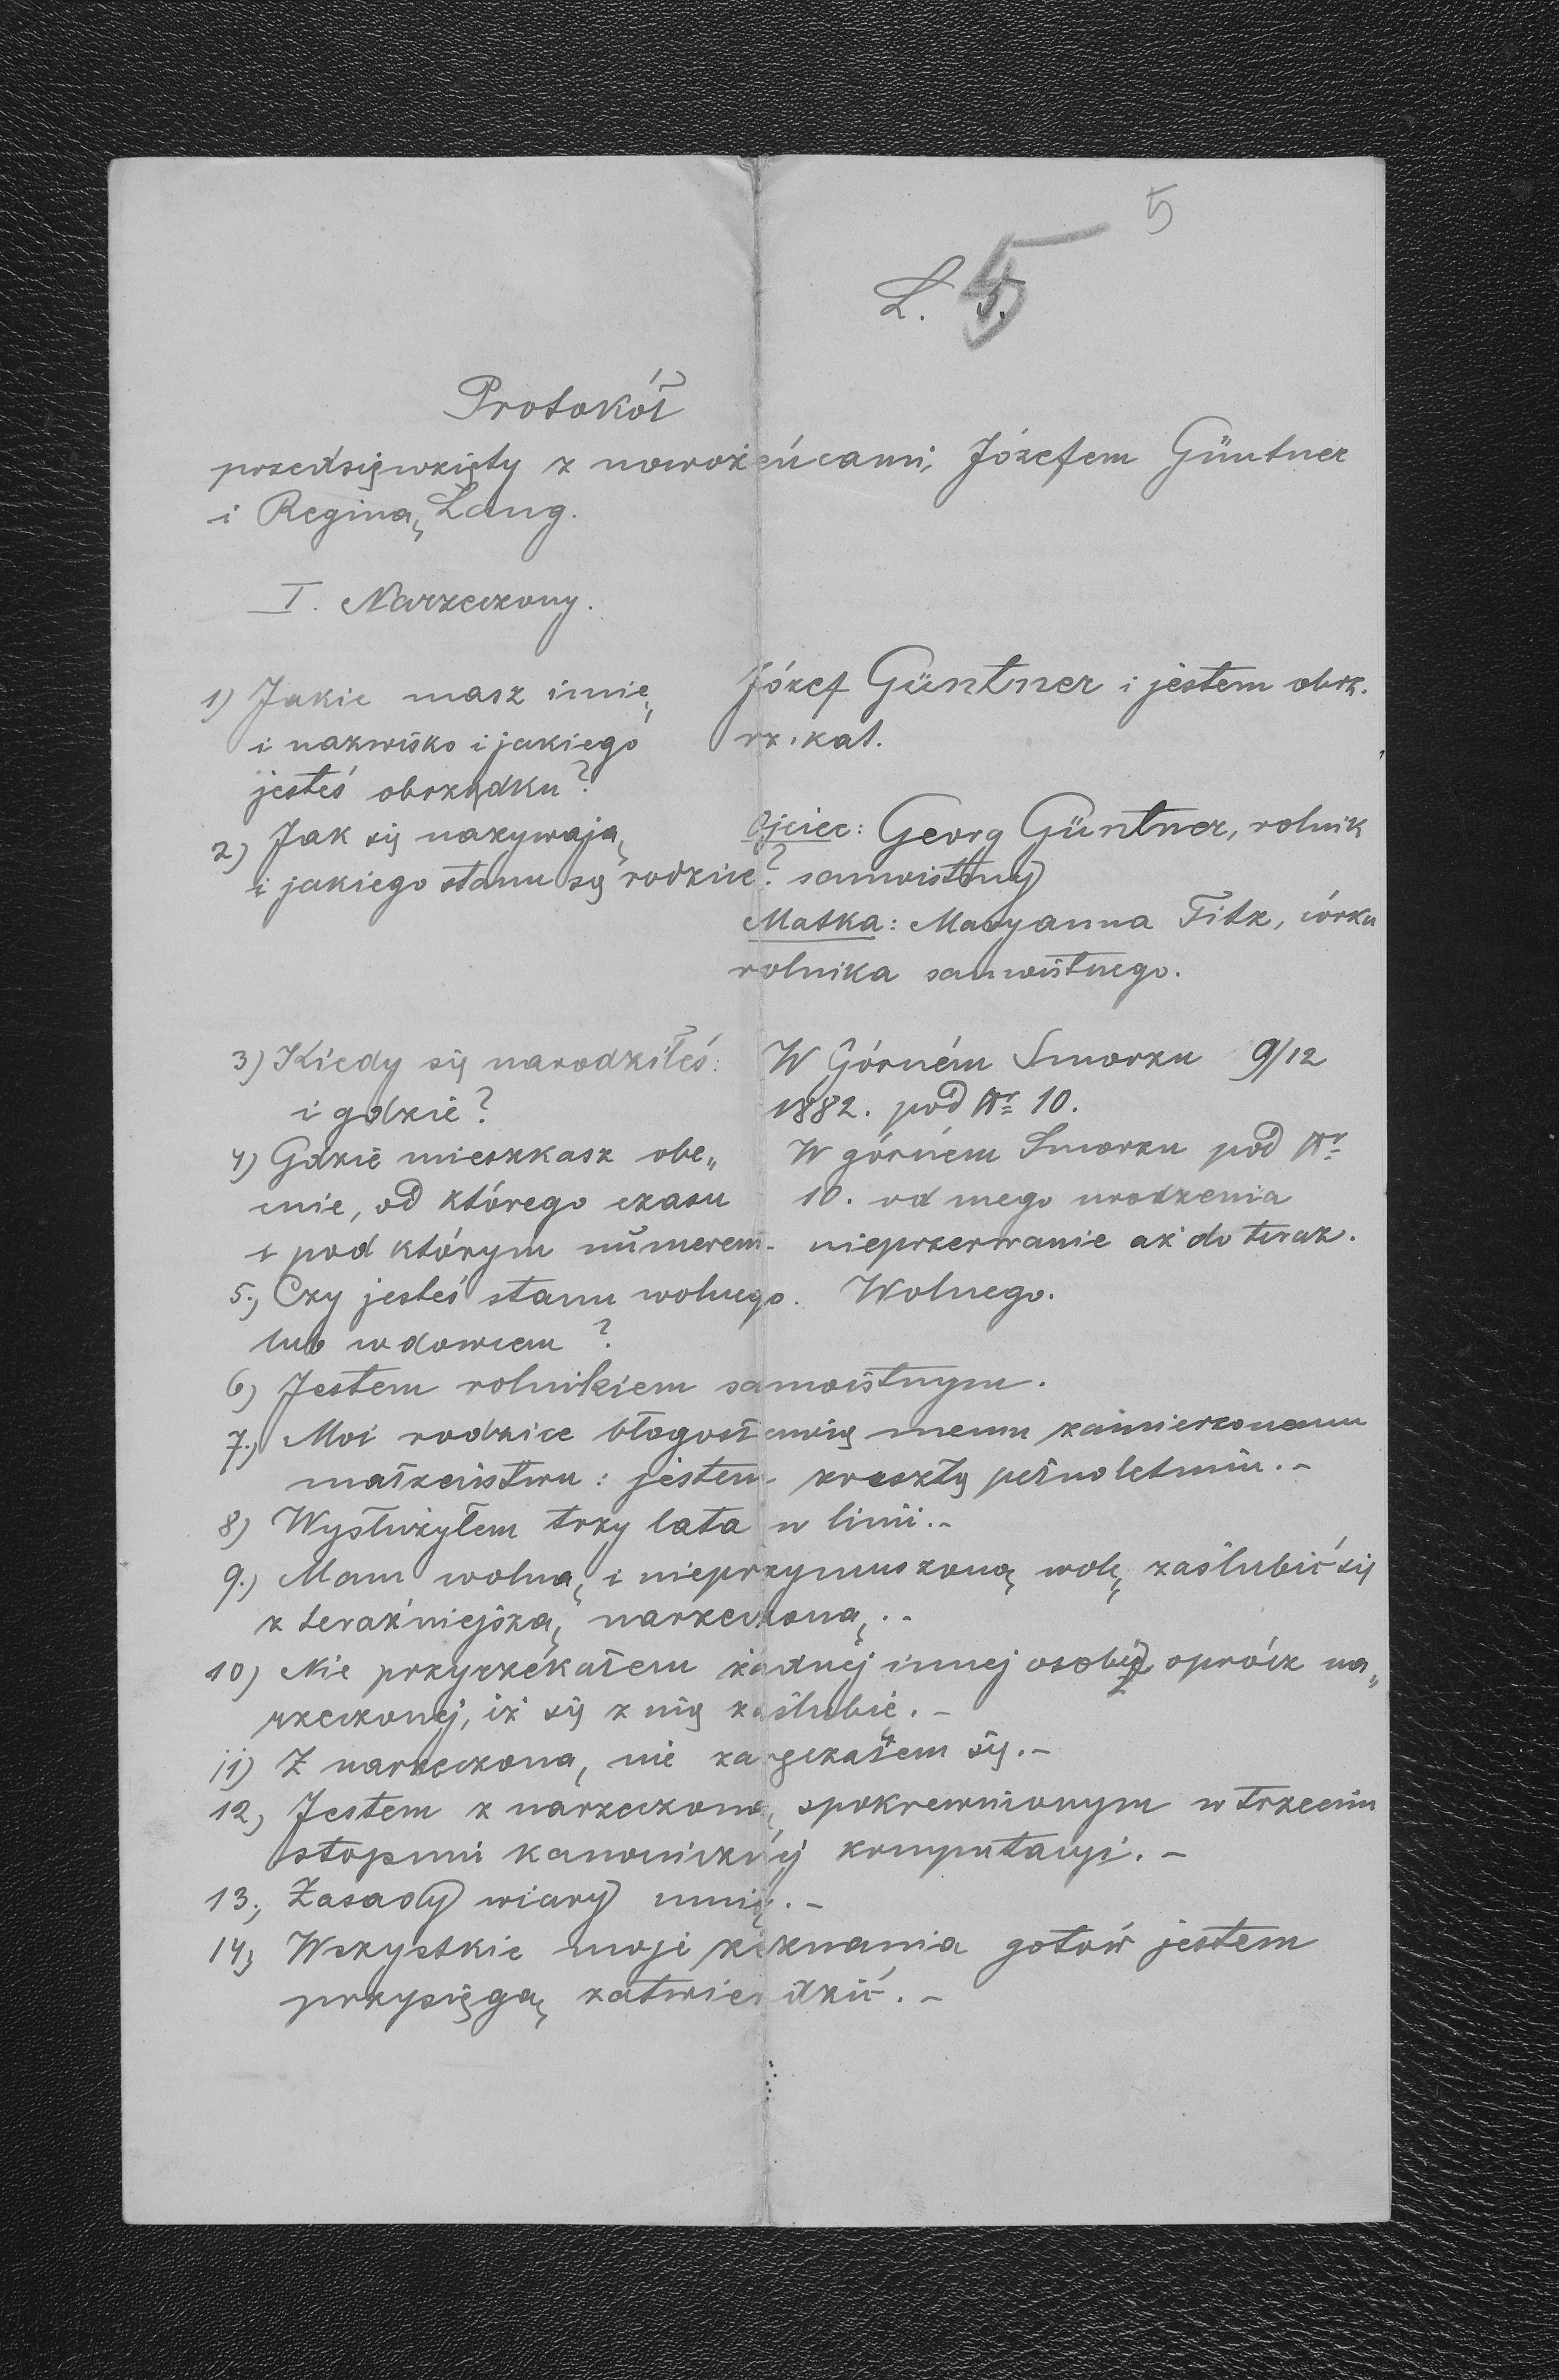 5
L. 5.
Protokół
przedsięwzięty z nowożeńcami, Józefem Güntner
i Reginą Lang.
I. Narzeczony.
1) Jakie masz imię, Józef Güntner i jestem obrz.
i nazwisko i jakiego rz. kat.
jesteś obrządku?
2) Jak się nazywają Ojciec: Georg Güntner, rolnik
i jakiego stanu są rodzice? samoistny
Matka: Maryanna Titz, córka
rolnika samoistnego.
3) Kiedy się narodziłeś: W Górném Smorzu 9/12
i gdzie? 1882. pod Nr 10.
4) Gdzie mieszkasz obe„ W górném Smorzu pod Nr
cnie, od którego czasu 10. od mego urodzenia
i pod którym numerem- nieprzerwanie aż do teraz.
5.) Czy jesteś stanu wolnego. Wolnego.
lub wdowcem?
6) Jestem rolnikiem samoistnym.
7.) Moi rodzice błogosławią memu zamierzonemu
małżeństwu: jestem- zresztą pełnoletnim.-
8) Wysłużyłem trzy lata w linii.-
9.) Mam wolną, i nieprzymuszoną wolę, zaślubić się
z teraźniejszą, narzeczoną.-
10) Nie przyrzékałem żadnéj innej osobie, oprócz na„
rzeczonéj, iż się z nią zaślubię.-
11) Z narzeczoną, nie zaręczałem się.-
12) Jestem z narzeczoną, spokrewnionym w trzecim
stopniu kanonicznéj komputacyi.-
13.) Zasady wiary umię.-
14) Wszystkie moje zéznania gotów jestem
przysięgą, zatwierdzić.-